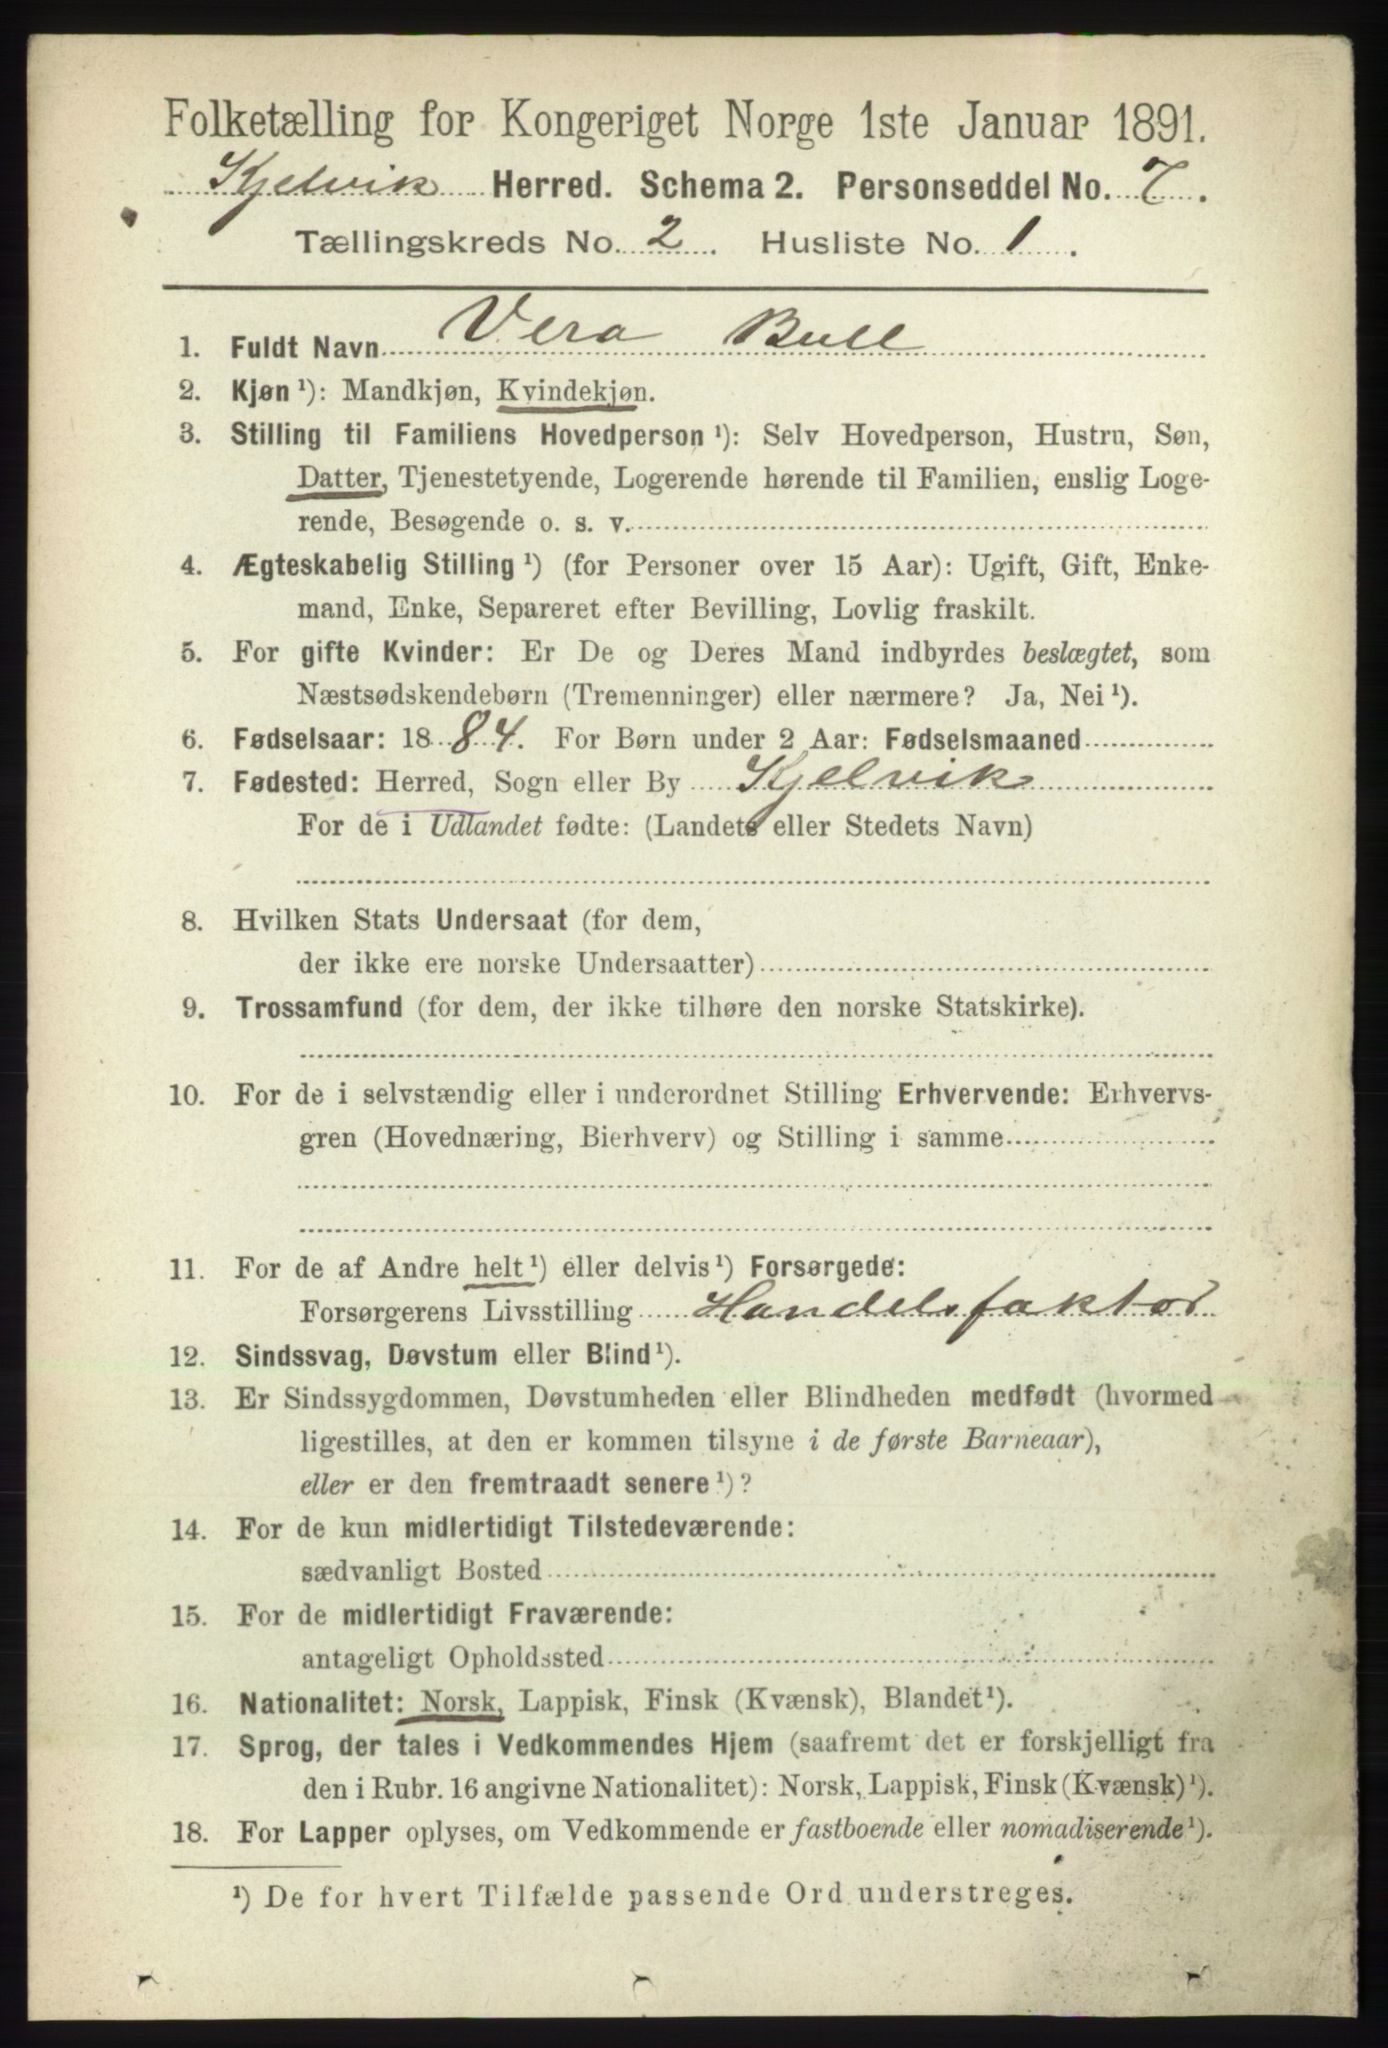 Folketælling for Kongeriget Norge 1ste Januar 1891.
Kjelvik Herred. Schema 2. Personseddel No. 7.
Tællingskreds No. 2. Husliste No. 1.
1. Fuldt Navn Vera Bull
2. Kjøn ¹): Mandkjøn, Kvindekjøn.
3. Stilling til Familiens Hovedperson ¹): Selv Hovedperson, Hustru, Søn,
Datter, Tjenestetyende, Logerende hørende til Familien, enslig Loge-
rende, Besøgende o. s. v.
4. Ægteskabelig Stilling ¹) (for Personer over 15 Aar): Ugift, Gift, Enke-
mand, Enke, Separeret efter Bevilling, Lovlig fraskilt.
5. For gifte Kvinder: Er De og Deres Mand indbyrdes beslægtet, som
Næstsødskendebørn (Tremenninger) eller nærmere? Ja, Nei ¹).
6. Fødselsaar: 1884. For Børn under 2 Aar: Fødselsmaaned
7. Fødested: Herred, Sogn eller By Kjelvik
For de i Udlandet fødte: (Landets eller Stedets Navn)
8. Hvilken Stats Undersaat (for dem,
der ikke ere norske Undersaatter)
9. Trossamfund (for dem, der ikke tilhøre den norske Statskirke).
10. For de i selvstændig eller i underordnet Stilling Erhvervende: Erhvervs-
gren (Hovednæring, Bierhverv) og Stilling i samme
11. For de af Andre helt ¹) eller delvis ¹) Forsørgede:
Forsørgerens Livsstilling Handelsfaktor
12. Sindssvag, Døvstum eller Blind ¹).
13. Er Sindssygdommen, Døvstumheden eller Blindheden medfødt (hvormed
ligestilles, at den er kommen tilsyne i de første Barneaar),
eller er den fremtraadt senere ¹)?
14. For de kun midlertidigt Tilstedeværende:
sædvanligt Bosted
15. For de midlertidigt Fraværende:
antageligt Opholdssted
16. Nationalitet: Norsk, Lappisk, Finsk (Kvænsk), Blandet ¹).
17. Sprog, der tales i Vedkommendes Hjem (saafremt det er forskjelligt fra
den i Rubr. 16 angivne Nationalitet): Norsk, Lappisk, Finsk (Kvænsk) ¹).
18. For Lapper oplyses, om Vedkommende er fastboende eller nomadiserende ¹).
¹) De for hvert Tilfælde passende Ord understreges.